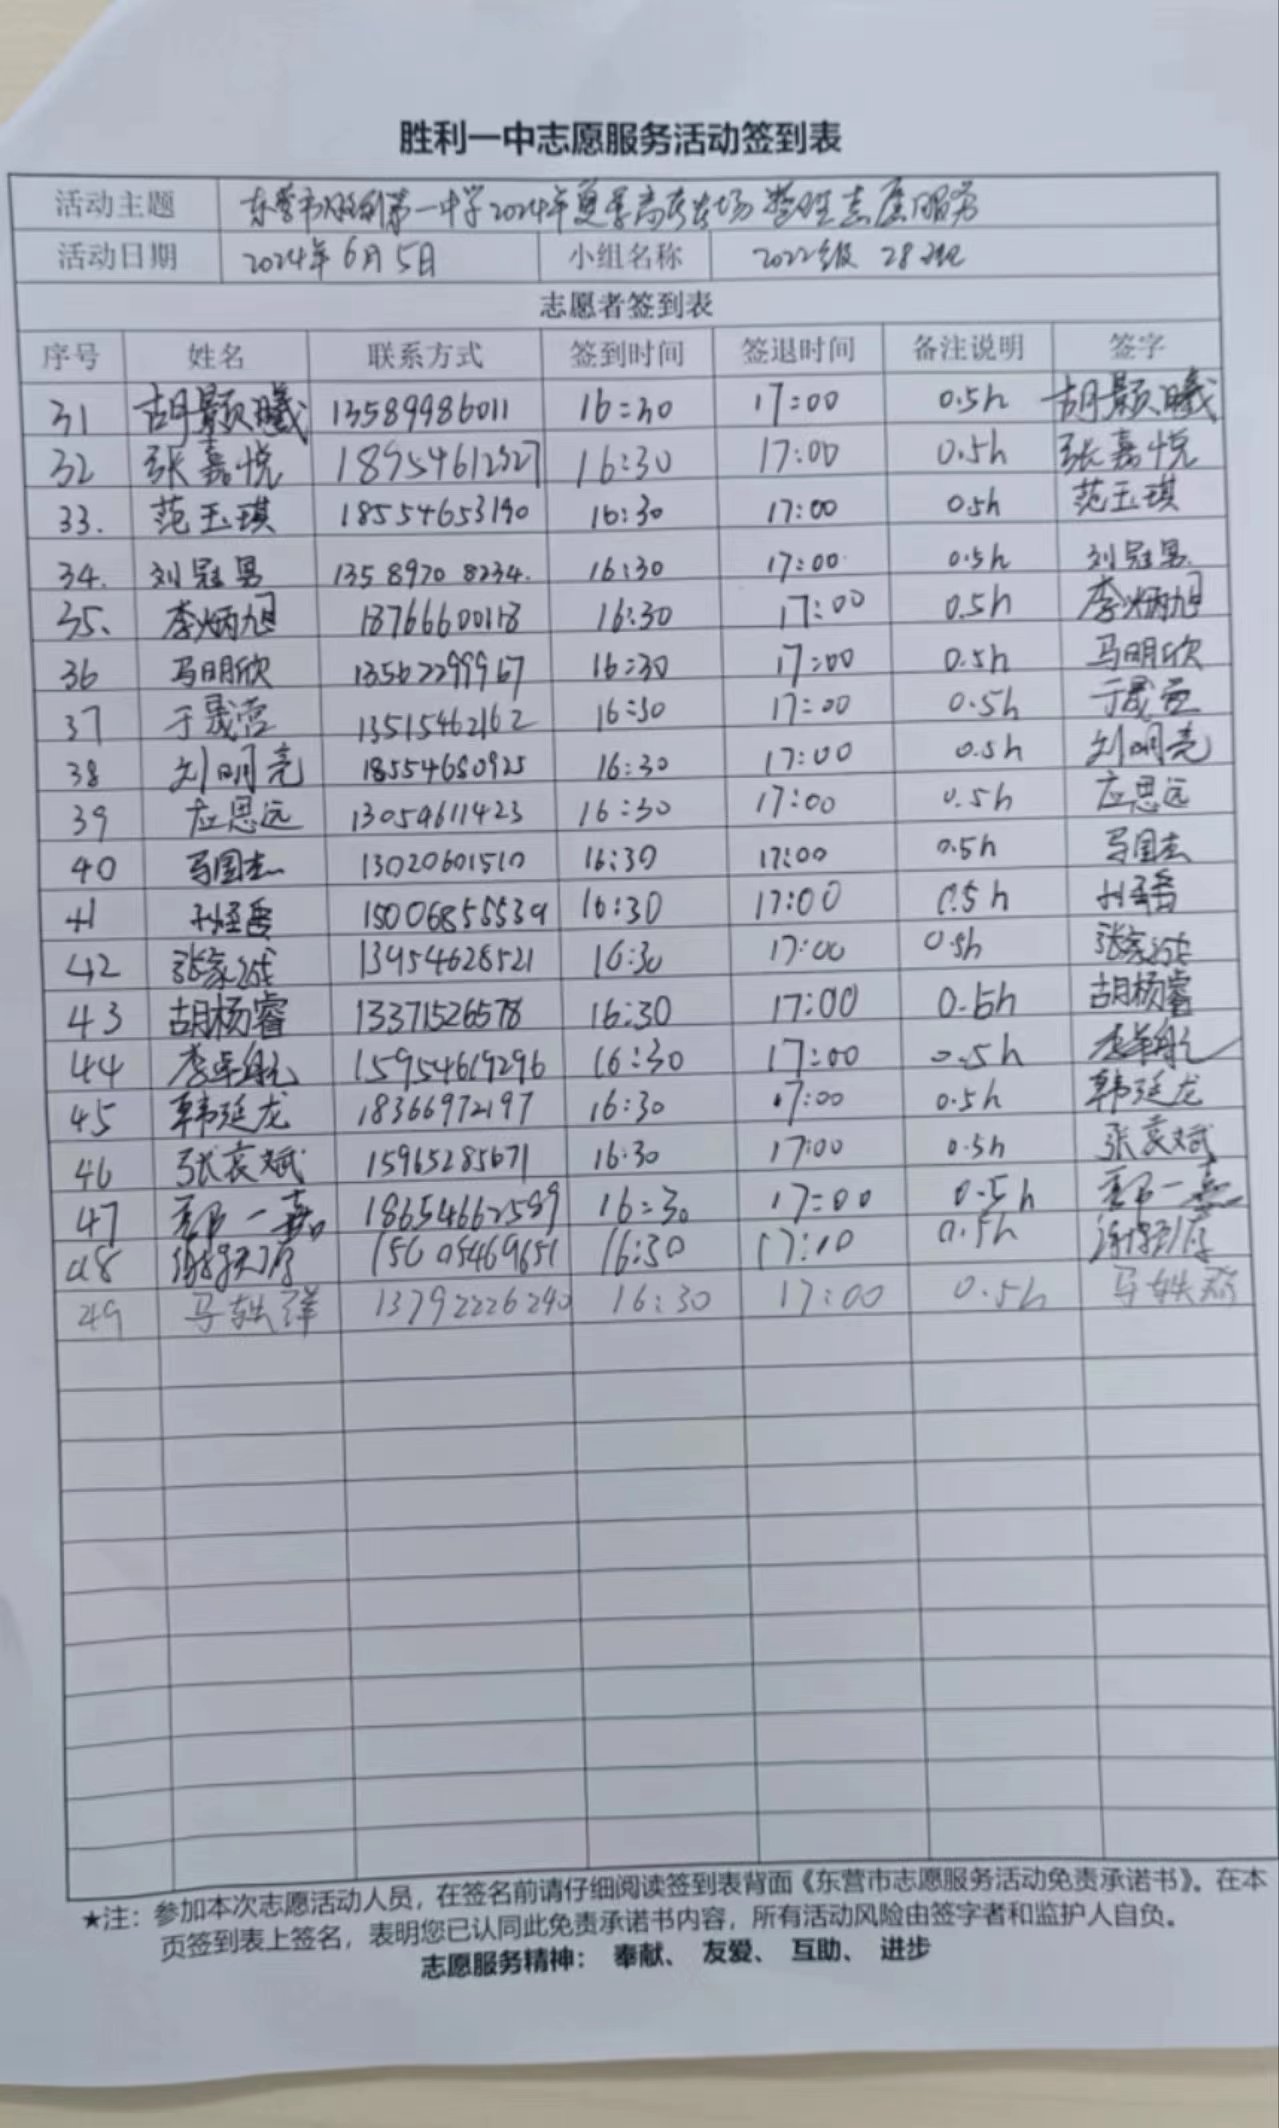 胜利一中志愿服务活动签到表
活动主题 东营市胜利第一中学2024年夏季高考考场整理志愿服务
活动日期 2024年6月5日 小组名称 2022级 28班
志愿者签到表
序号 姓名 联系方式 签到时间 签退时间 备注说明 签字
31 胡颢曦 13589986011 16:30 17:00 0.5h 胡颢曦
32 张嘉悦 18954612327 16:30 17:00 0.5h 张嘉悦
33. 范玉琪 18554653190 16:30 17:00 0.5h 范玉琪
34. 刘冠男 13589708234. 16:30 17:00 0.5h 刘冠男
35、 李炳旭 18766600118 16:30 17:00 0.5h 李炳旭
36 马明欣 13562299967 16:30 17:00 0.5h 马明欣
37 于晟营 13515462162 16:30 17:00 0.5h 于晟营
38 刘明亮 18554680925 16:30 17:00 0.5h 刘明亮
39 应思远 13054611423 16:30 17:00 0.5h 应思远
40 马国杰 13020601510 16:30 17:00 0.5h 马国杰
41 15006855539 16:30 17:00 0.5h
42 13954628521 16:30 17:00 0.5h
43 胡杨睿 13371526578 16:30 17:00 0.5h 胡杨睿
44 李卓航 15954619296 16:30 17:00 0.5h 李卓航
45 韩延龙 18366972197 16:30 17:00 0.5h 韩延龙
46 张袁斌 15965285671 16:30 17:00 0.5h 张袁斌
47 一嘉 18654662599 16:30 17:00 0.5h 一嘉
48 15005469651 16:30 17:00 0.5h
49 马轶群 13792226240 16:30 17:00 0.5h 马轶群
★注：参加本次志愿活动人员，在签名前请仔细阅读签到表背面《东营市志愿服务活动免责承诺书》。在本
页签到表上签名，表明您已认同此免责承诺书内容，所有活动风险由签字者和监护人自负。
志愿服务精神： 奉献、 友爱、 互助、 进步